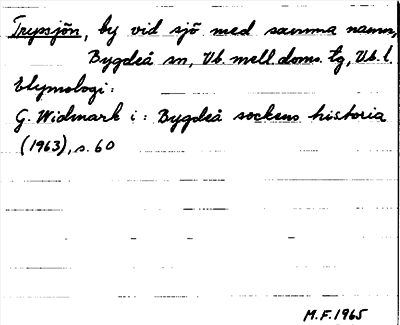 Tryssjön, by vid sjö med samma namn,
Bygdeå sn, Vb. mell. doms. tg, Vb. l.
Etymologi:
G. Widmark i: Bygdeå sockens historia
(1963), s. 60
M.F. 1965